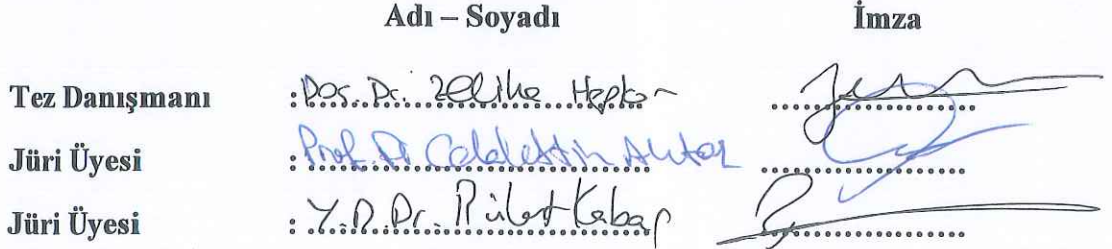 Adı – Soyadı İmza
Tez Danışmanı : Doç. Dr. Zeliha Hepkon
Jüri Üyesi : Prof. Dr. Celalettin Aktaş
Jüri Üyesi : Y.D.Dr. Kabaş